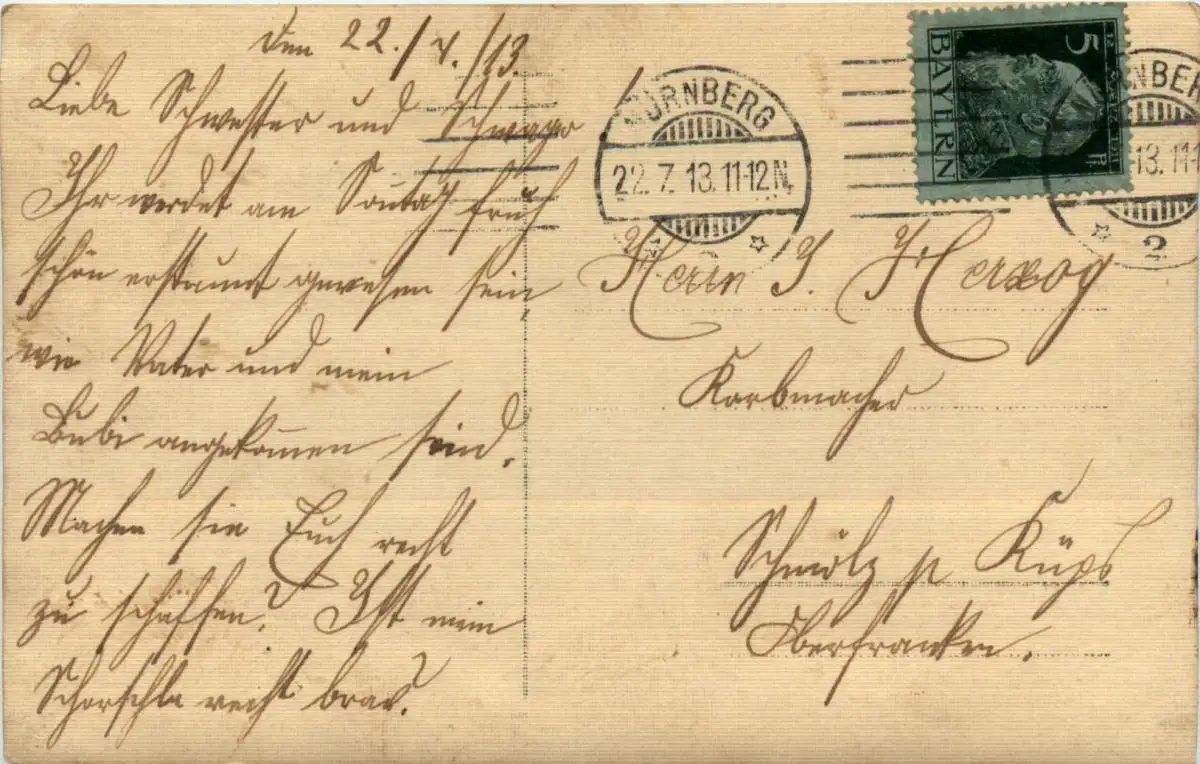 Den 22./V./13.
Liebe Schwester und Schwager
Ihr werdet am Sontag früh
schön erstaunt gewesen sein,
wie Vater und mein
Bubi angekom̅en sind.
Machen sie Euch recht
zu schaffen? Ist mein
Schorschla recht brav?
NÜRNBERG
22. 7. 13. 11-12 N.
BAYERN
5
NBER
13. 11-1
2
Herrn J. Herzog
Korbmacher
Schmölz p Küps
Oberfranken.